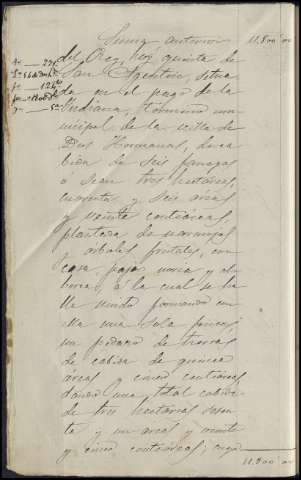 Suma anterior 11.800
del Rey, hoy quinta de
San Agustin, situa-
da en el pago de la
Indiana, término mu-
nicipal de la villa de
Dos Hermanas, de ca-
bida de seis fanegas
ó sean tres hectáreas,
cuarenta y seis áreas
y veinte centiáreas,
plantada de naranjos
y árboles frutales, con
casa, pajar, noria y al-
berca, á la cual se ha-
lla unido formando con
ella una sola finca,
un pedazo de tierra
de cabida de quince
áreas y cinco centiáreas,
dando una total cabida
de tres hectáreas sesen-
ta y un areas y veinte
y cinco centiáreas; cuya
11.800